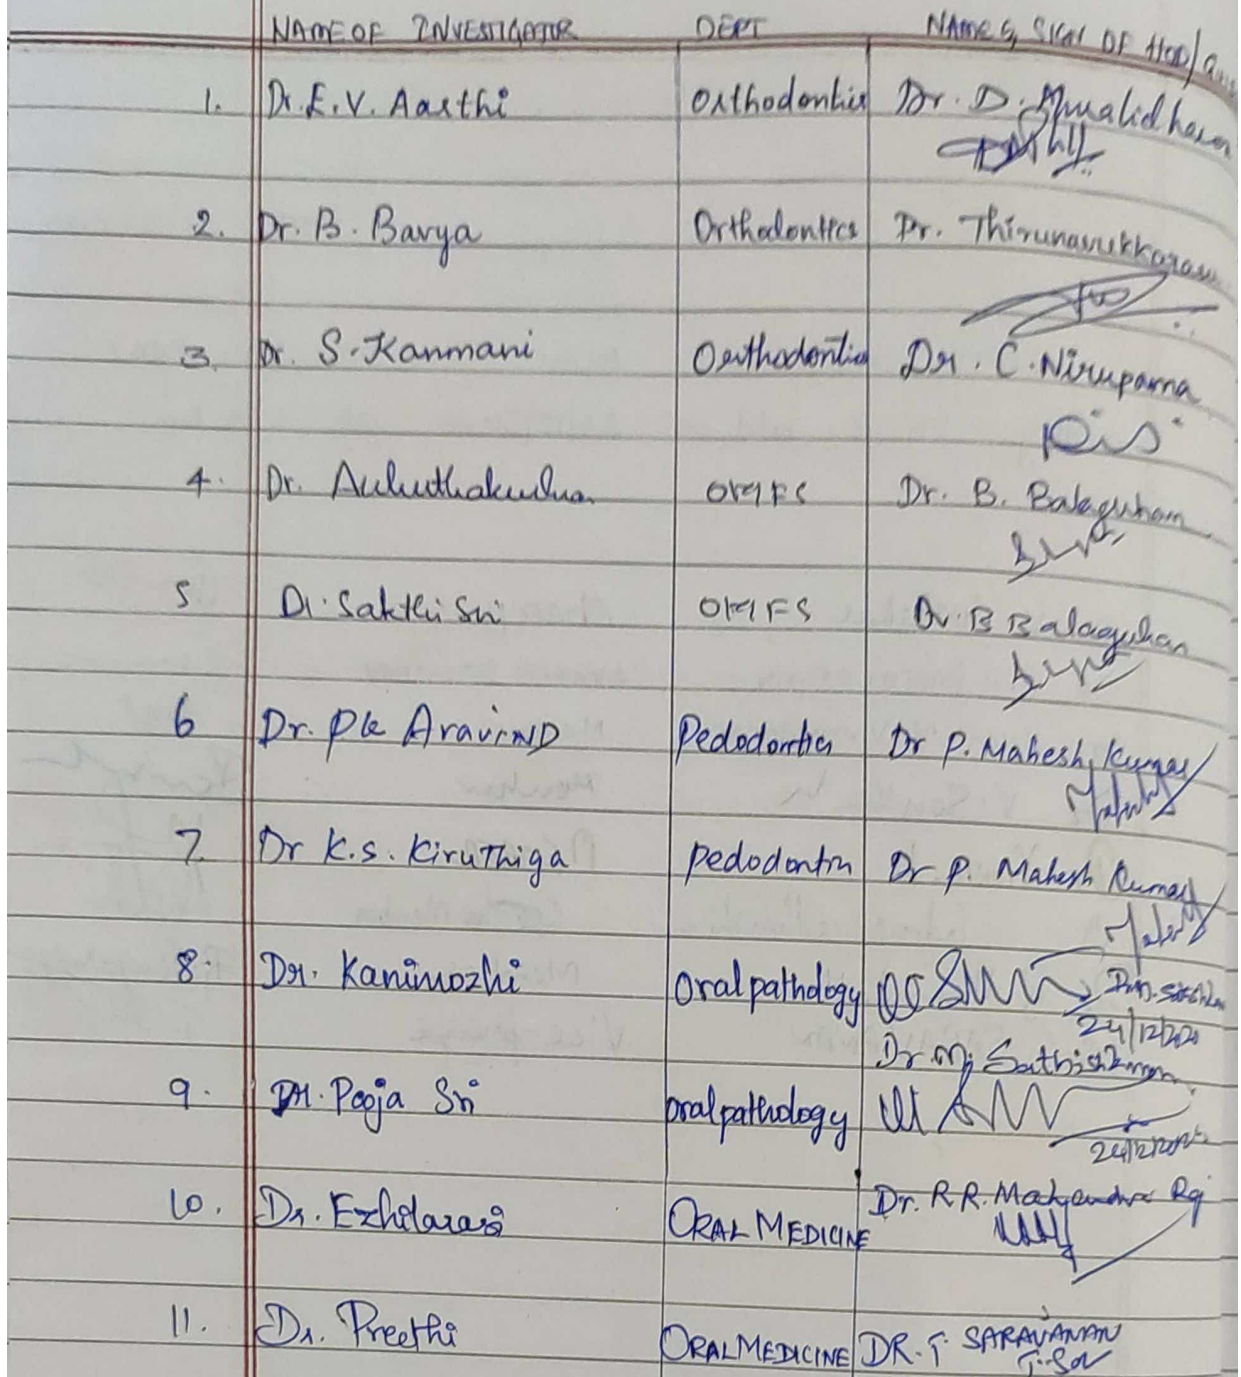 NAME OF INVESTIGATOR DEPT NAME & SIGN OF HOD/
1. Dr. E. V. Aarthi Orthodontics Dr. D. Muralidharan
2. Dr. B. Bavya Orthodontics Dr. Thirunavukkarasu
3. Dr. S. Kanmani Orthodontics Dr. C. Nirupama
4. Dr. OMFS Dr. B. Balaguhan
5 Dr. Sakthi Sri OMFS Dr. B Balaguhan
6 Dr. PK AravinD Pedodontics Dr P. Mahesh Kumar
7. Dr K.S. KiruThiga Pedodontics Dr P. Mahesh Kumar
8. Dr. Kanimozhi Oral pathology
24/12/2020
Dr. M. Sathishkumar
9. Dr. Pooja Sri oral pathology
10. Dr. Ezhilarasi ORAL MEDICINE Dr. R.R. Mahendra Raj
11. Dr. Preethi ORAL MEDICINE DR. T. SARAVANAN